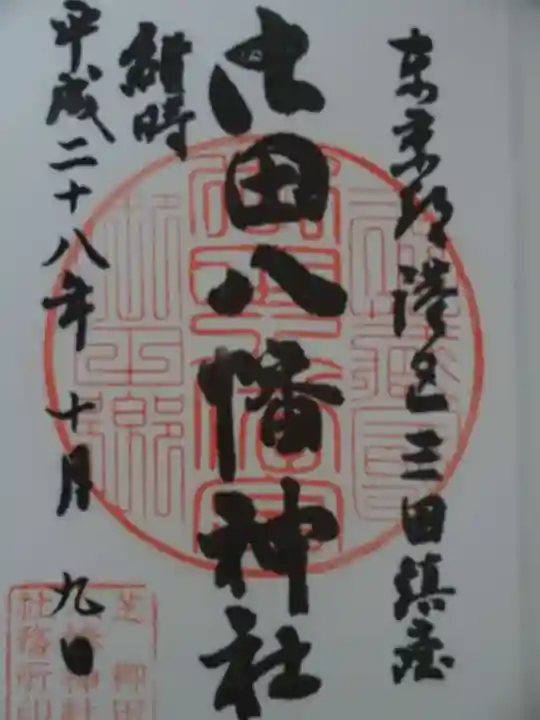 東京都港区三田鎮座
御田八幡神社
維時
平成二十八年 十月 九日
芝 御田
八幡神社
社務所印